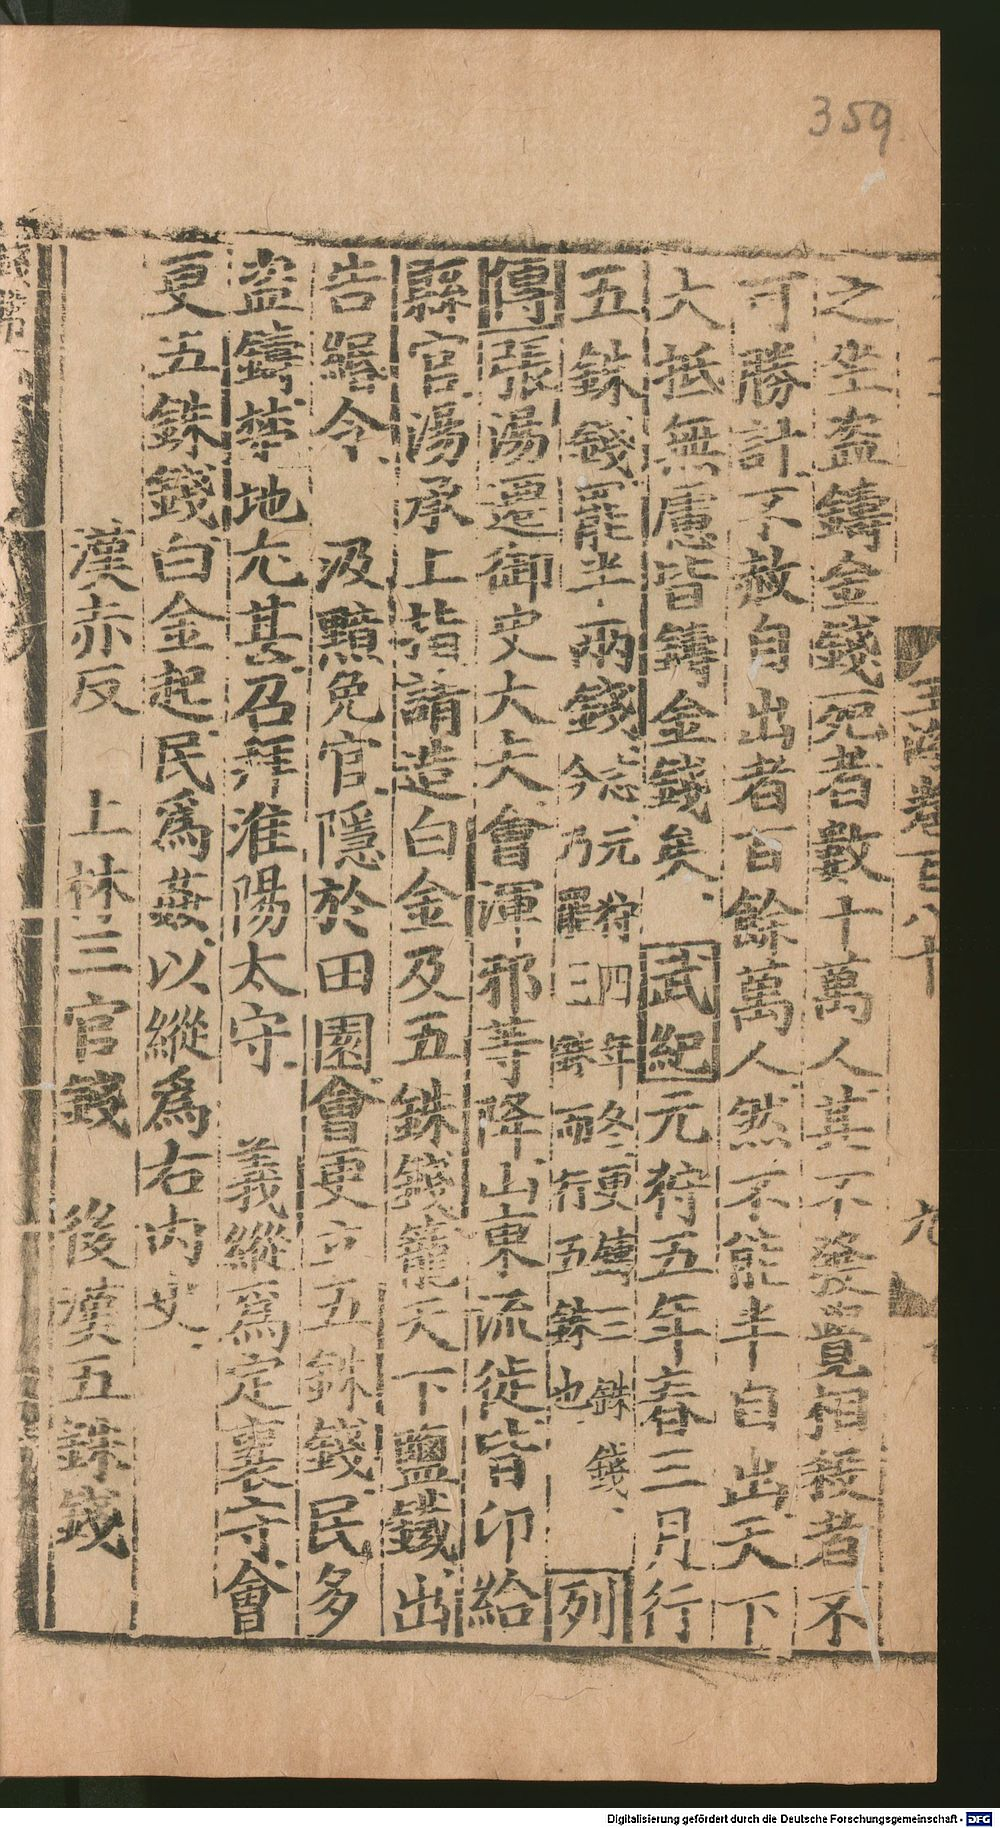 359
之坐盗鑄金錢死者數十萬人其不發覺相殺者不
可勝計不赦自出者百餘萬人然不能半自出天下
大抵無慮皆鑄金錢矣武紀元狩五年春三月行
五銖錢罷半兩錢
元狩四年冬更鑄三銖錢
今乃罷三銖而行五銖也
列
傳張湯遷御史大夫會渾邪等降山東流徙皆卬給
縣官湯承上指請造白金及五銖錢籠天下鹽鐵出
告緡令 汲黯免官隱於田園會更立五銖錢民多
盗鑄楚地尤甚召拜淮陽太守 義縱爲定襄守會
更五銖錢白金起民爲姦以縱爲右内史
漢赤仄 上林三官錢 後漢五銖錢
玉海卷百八十
Digitalisierung gefördert durch die Deutsche Forschungsgemeinschaft - DFG